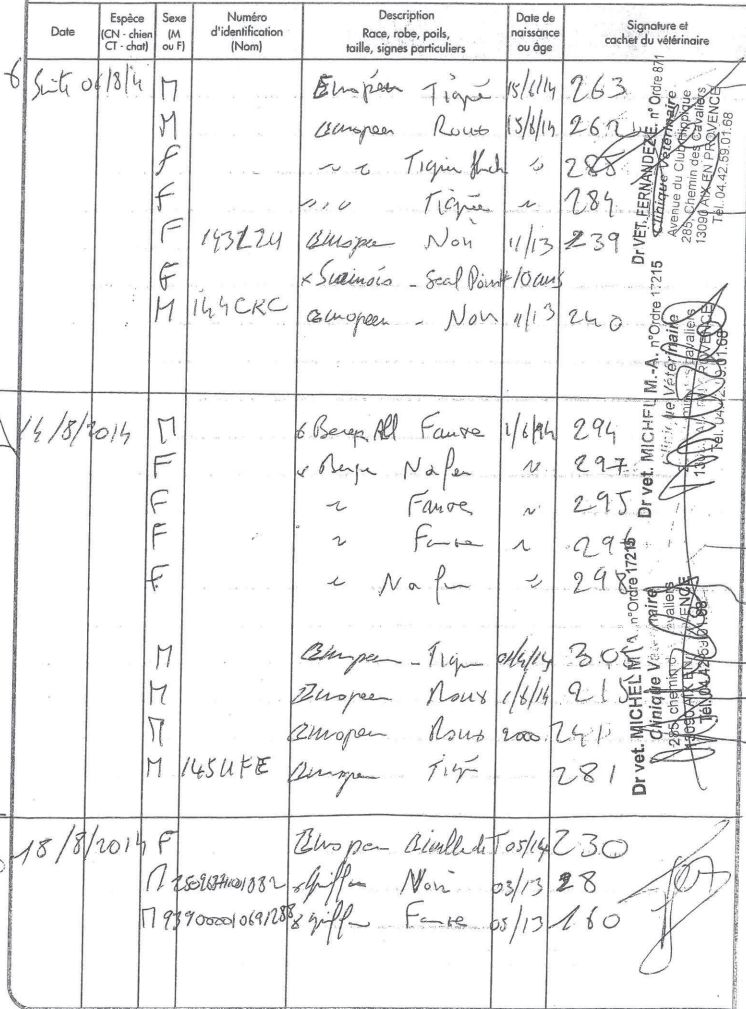 Date Espèce (CN - chien CT - chat) Sexe (M ou F) Numéro d'identification (Nom) Description Race, robe, poils, taille, signes particuliers Date de naissance ou âge Signature et cachet du vétérinaire
6 Suite 06/8/14 M Européen Tigré 15/6/14 263
M européen Roux 15/6/14 262
F Tigrée 285
F Tigrée 284
F 143ZZU Européen Noir 11/13 239
F x Siamois - Seal Point 10 ans
M 144CKC européen - Noir 11/13 240
14/8/2014 M x Berger All Fauve 294
F x Berger Na feu 297
F " Fauve " 295
F " Fauve "
F " Na feu " 298
M Européen - Tigré 305
M Européen Roux 1/6/14 215
M Européen Roux 2000 241
M 145UFE Européen Tigré 281
18/8/2014 F Européen 05/14 230
M x Griffon Noir 03/13 28
M x griffon Fauve 05/13 160
Dr VET. FERNANDEZ E. n° Ordre 871
Clinique Vétérinaire
Avenue du Club Hippique
285, Chemin des Cavaliers
13090 AIX EN PROVENCE
Tél. 04.42.59.01.68
Dr vet. MICHEL M.-A. n°Ordre 17215
Clinique Vétérinaire
Dr vet. MICHEL M.A. n°Ordre 17215
Clinique Vétérinaire
285, chemin des cavaliers
13090 AIX EN PROVENCE
Tél. 04.42.59.01.68